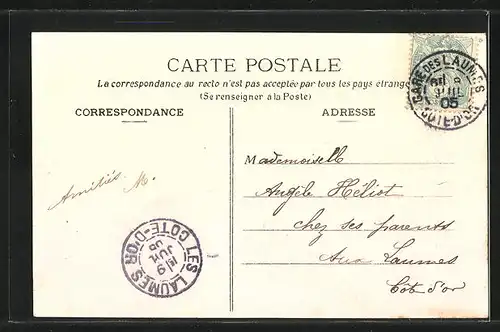 CARTE POSTALE
La correspondance au recto n'est pas acceptée par tous les pays étrang
(Se renseigner à la Poste)
CORRESPONDANCE
ADRESSE
GARE DES LAUMES
COTE-D'OR
05
Mademoiselle
Angèle Héliot
chez ses parents
Aux Laumes
Cot d'or
Amitiés M.
LES LAUMES COTE-D'OR
9
JUIL
05